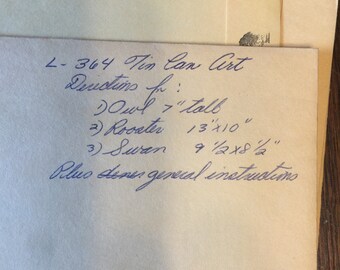 L-364 Tin Can Art
Directions for:
1) Owl 7" tall
2) Rooster 13"x10"
3) Swan 9 1/2 x 8 1/2"
Plus general instructions